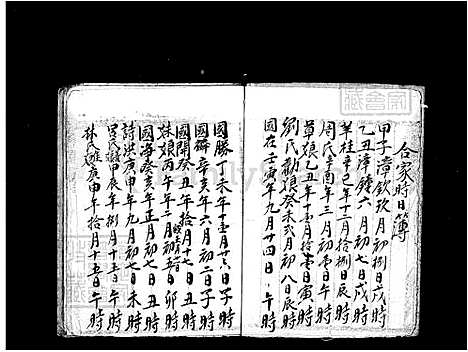 合家時日簿
甲子漳欽玖月初捌日戌時
乙丑漳鐘六月初七日戌時
羊桂辛巳年十二月拾捌日辰時
周氏辛酉年三月初壱日午時
草娘乙丑年十壹月拾壱日寅時
劉氏勸娘癸未弍月初八日辰時
國在壬寅年九月十四日午時
國勝未年十壹月廿六日子時
國麟辛亥年六月初二日子時
國開癸丑年拾月十七日丑時
妹娘丙午年三月初五日卯時
國海癸亥年正月初七日丑時
詩洪庚申年九月初七日未時
呂氏甲辰年捌月十五日午時
林氏庚申年拾月十五日午時